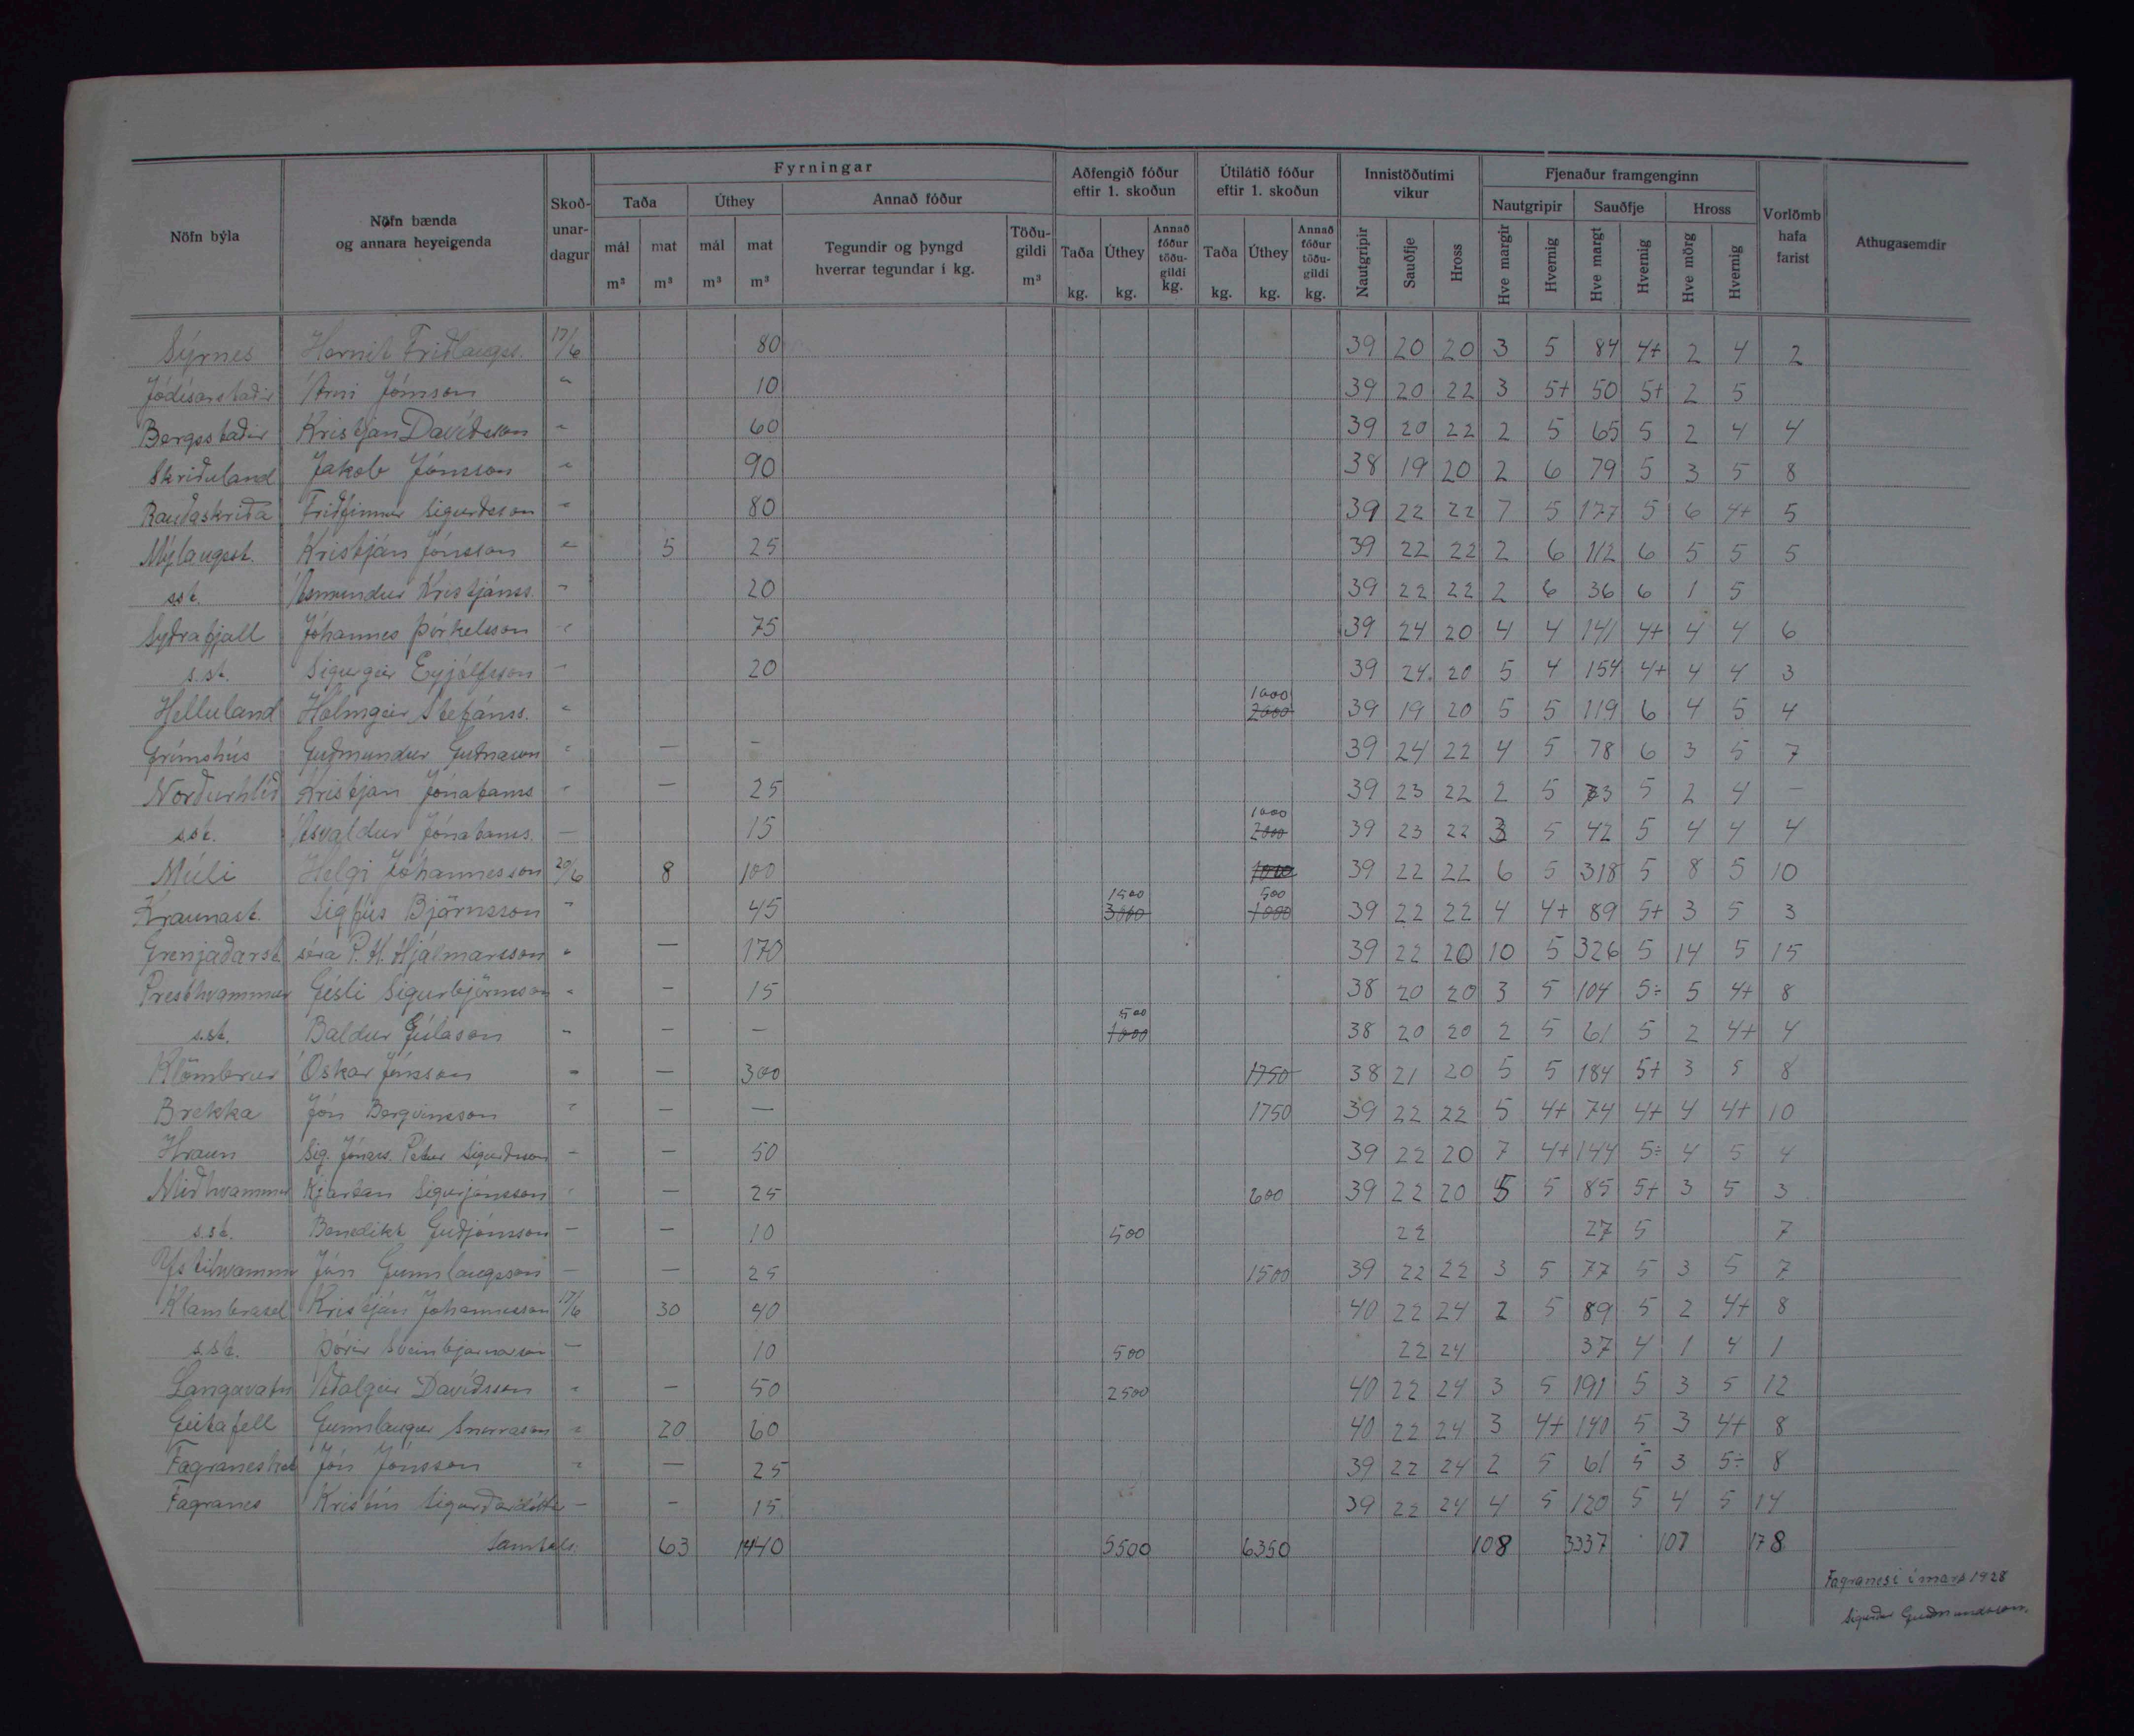 Fyrningar
Aðfengið fóður eftir 1. skoðun
Útilátið fóður eftir 1. skoðun
Innistöðutimi vikur
Fjenaður framgenginn
Nöfn býla
Nöfn bænda og annara heyeigenda
Skoð-unar-dagur
Taða
Úthey
Annað fóður
Nautgripir
Sauðfje
Hross
Vorlömb hafa farist
Athugasemdir
mál m³
mat m³
mál m³
mat m³
Tegundir og þyngd hverrar tegundar í kg.
Töðu-gildi m³
Taða kg.
Úthey kg.
Annað fóður töðu-gildi kg.
Taða kg.
Úthey kg.
Annað fóður töðu-gildi kg.
Nautgripir
Sauðfje
Hross
Hve margir
Hvernig
Hve margt
Hvernig
Hve mörg
Hvernig
Sýrnes Hernit Friðlaugss. 17/6 80 39 20 20 3 5 84 4+ 2 4 2
Jódísarstaðir Árni Jónsson " 10 39 20 22 3 5+ 50 5+ 2 5
Bergsstaðir Kristján Davíðsson " 60 39 20 22 2 5 65 5 2 4 4
Skriðuland Jakob Jónsson " 90 38 19 20 2 6 79 5 3 5 8
Rauðaskriða Friðfinnur Sigurðsson " 80 39 22 22 7 5 177 5 6 4+ 5
Mýlaugsst. Kristján Jónsson " 5 25 39 22 22 2 6 112 6 5 5 5
sst. Ásmundur Kristjánss. " 20 39 22 22 2 6 36 6 1 5
Syðrafjall Jóhannes Þorkelsson " 75 39 24 20 4 4 141 4+ 4 4 6
s.st. Sigurgeir Eyjólfsson " 20 39 24 20 5 4 154 4+ 4 4 3
Helluland Hólmgeir Stefánss. " 1000 2000 39 19 20 5 5 119 6 4 5 4
Grímshús Guðmundur Guðnason " — — 39 24 22 4 5 78 6 3 5 7
Norðurhlíð Kristján Jónatans " — 25 39 23 22 2 5 73 5 2 4 —
s.st. Ásvaldur Jónatans. — 15 1000 2000 39 23 22 3 5 42 5 4 4 4
Múli Helgi Jóhannesson 20/6 8 100 1000 39 22 22 6 5 318 5 8 5 10
Kraunast. Sigfús Björnsson " 45 1500 3000 500 1000 39 22 22 4 4+ 89 5+ 3 5 3
Grenjaðarst. séra P. H. Hjálmarsson " — 170 39 22 20 10 5 326 5 14 5 15
Presthvammur Gísli Sigurbjörnsson " — 15 38 20 20 3 5 104 5÷ 5 4+ 8
s.st. Baldur Gíslason " — — 500 1000 38 20 20 2 5 61 5 2 4+ 4
Klömbrur Óskar Jónsson " — 300 1750 38 21 20 5 5 184 5+ 3 5 8
Brekka Jón Bergvinsson " — — 1750 39 22 22 5 4+ 74 4+ 4 4+ 10
Hraun Sig. Jónas. Pétur Sigurðsson — — 50 39 22 20 7 4+ 144 5÷ 4 5 4
Miðhvammur Kjartan Sigurjónsson " — 25 600 39 22 20 5 5 85 5+ 3 5 3
s.st. Benedikt Guðjónsson — — 10 500 22 27 5 7
Ystihvammur Jón Gunnlaugsson — — 25 1500 39 22 22 3 5 77 5 3 5 7
Klambrasel Kristján Jóhannesson 17/6 30 40 40 22 24 2 5 89 5 2 4+ 8
s.st. Þórir Sveinbjarnarson — 10 500 22 24 37 4 1 4 1
Langavatn Aðalgeir Davíðsson " — 50 2500 40 22 24 3 5 191 5 3 5 12
Geitafell Gunnlaugur Snorrason " 20 60 40 22 24 3 4+ 140 5 3 4+ 8
Fagraneskot Jón Jónsson " — 25 39 22 24 2 5 61 5 3 5÷ 8
Fagranes Kristín Sigurðardóttir — — 15 39 22 24 4 5 120 5 4 5 14
Samtals: 63 1440 5500 6350 108 3337 107 178
Fagranesi í mars 1928
Sigurður Guðmundsson.